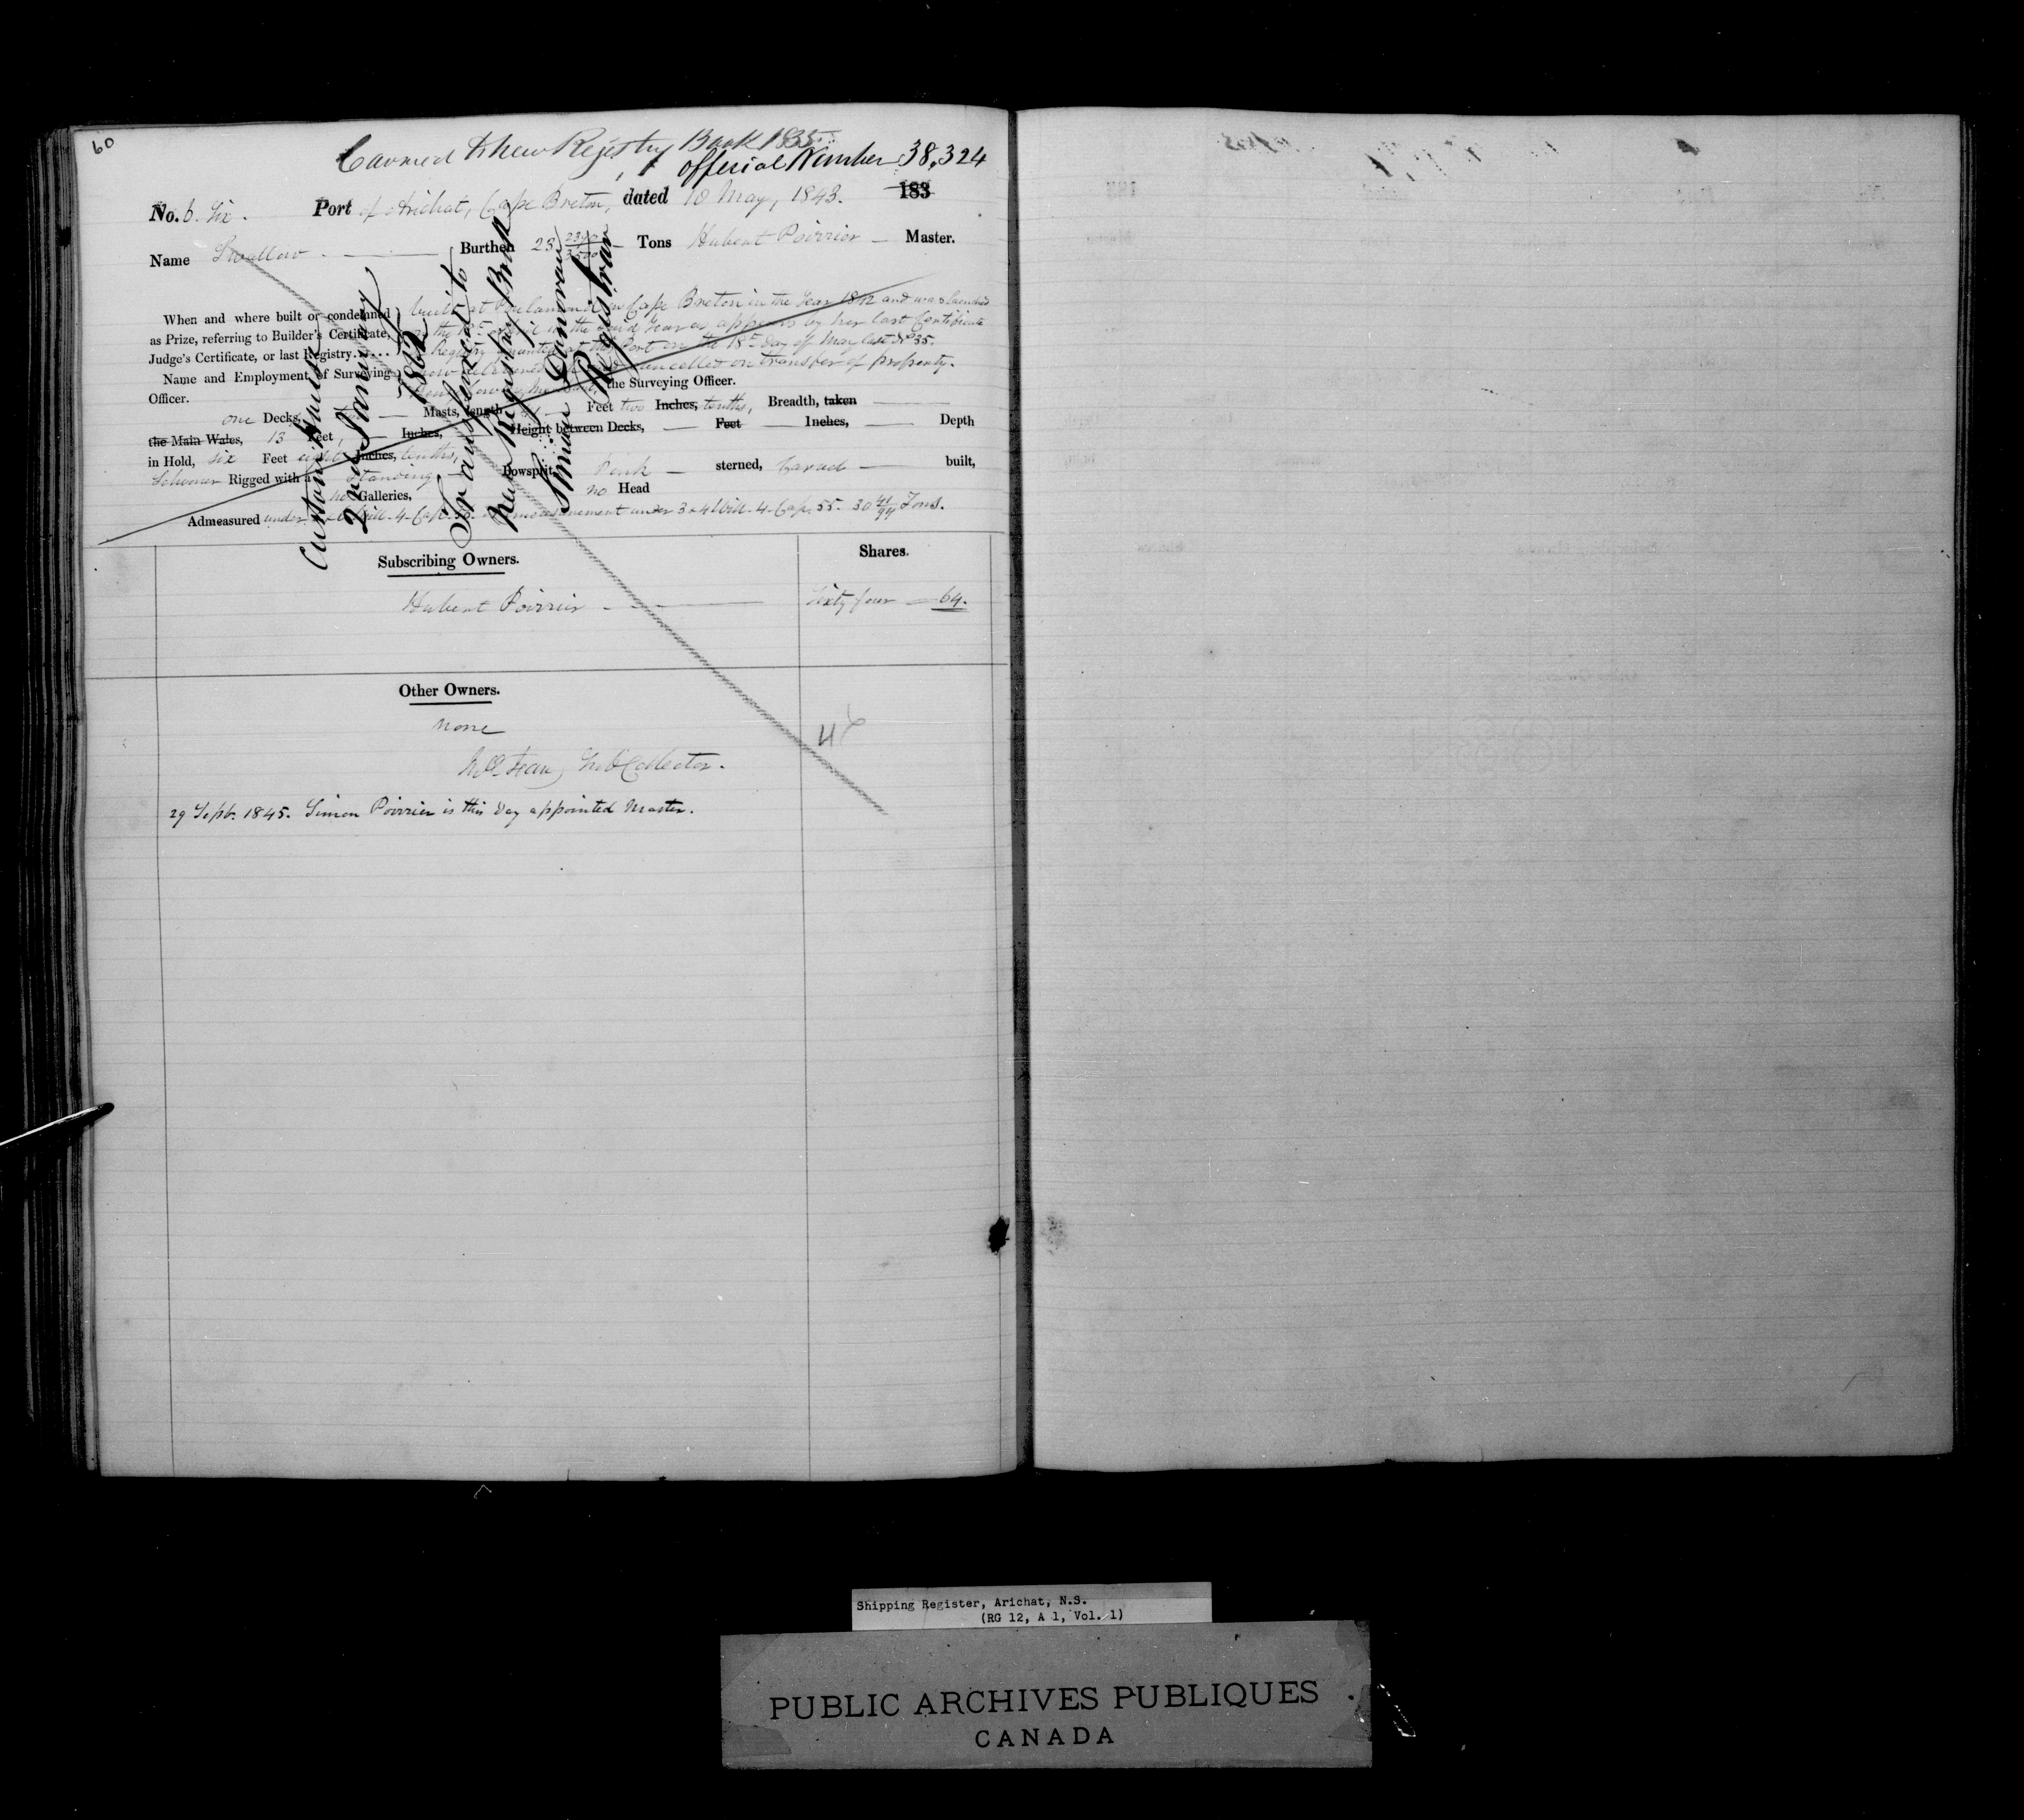 60
Carried to new Registry Book 1835
official Number 38,324
No. 6. Six. Port of Arichat, Cape Breton, dated 10 May, 1843. 183
Name Swallow Burthen 23 2390/3500 Tons Hubert Poirrier Master.
When and where built or condemned
as Prize, referring to Builder's Certificate,
Judge's Certificate, or last Registry......
built at in Cape Breton in the Year 1842 and was launched
the April in the said Year as appears by her last Certificate
Registry granted at this Port on the 18th day of May last No 35.
now delivered cancelled on transfer of property.
Name and Employment of Surveying
Officer.
the Surveying Officer.
one Decks, Masts, length Feet two Inches, tenths, Breadth, taken
the Main Wales, 13 Feet, Inches, Height between Decks, Feet Inches, Depth
in Hold, six Feet eight Inches, tenths,
Schooner Rigged with a Standing Bowsprit, Pink sterned, Carvel built,
no Galleries, no Head
Admeasured under Will. 4. Cap. Admeasurement under 3 & 4 Will. 4. Cap. 55. 30 41/94 Tons.
Custom House
2nd January
1862
Transferred to
New Registry Book
Donovan
Registrar
Subscribing Owners.
Shares.
Hubert Poirrier
Sixty four 64.
Other Owners.
none
Sub Collector.
29 Septr. 1845. Simon Poirrier is this day appointed Master.
Shipping Register, Arichat, N.S.
(RG 12, A 1, Vol. 1)
PUBLIC ARCHIVES PUBLIQUES
CANADA